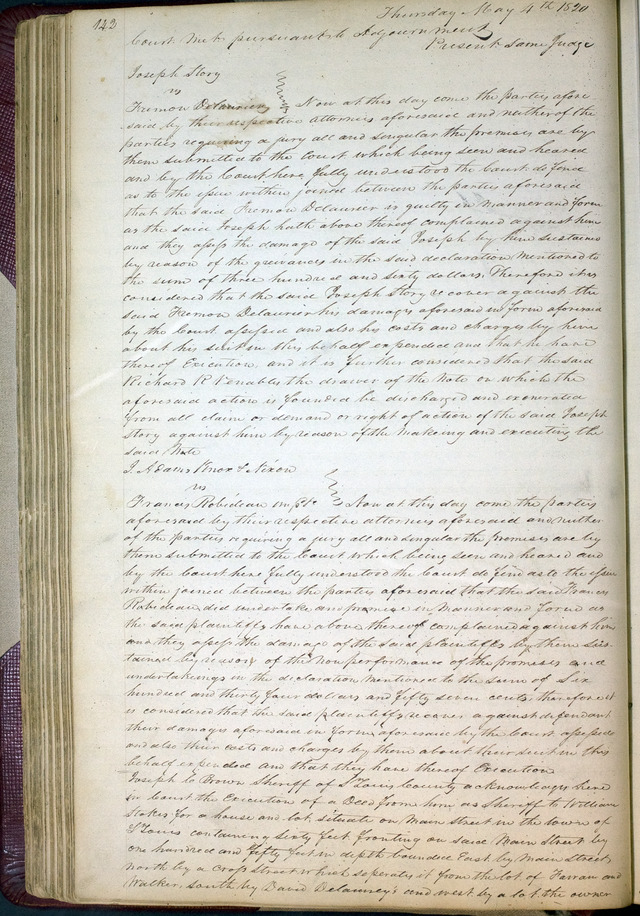 142
Thursday May 4th 1820
Court met pursuant to Adjournment
Present same Judge
Joseph Story
vs
Fremon Delaurier Now at this day come the parties afore-
said by their respective attornies aforesaid and neither of the
parties requiring a jury all and singular the premises are by
them submitted to the Court which being seen and heared
and by the Court here fully understood the Court do find
as to the issue within joined between the parties aforesaid
that the said Fremon Delaurier is guilty in manner and form
as the said Joseph hath above thereof complained against him
and they assess the damage of the said Joseph by him sustained
by reason of the grievances in the said declaration mentioned to
the sum of three hundred and sixty dollars, Therefore it is
considered that the said Joseph Story recover against the
said Fremon Delaurier his damages aforesaid in form aforesaid
by the Court assessed and also his costs and charges by him
about his suit in this behalf expended and that he have
thereof Execution, and it is further considered that the said
Richard R Venables the drawer of the Note on which the
aforesaid action is founded be discharged and exonerated
from all claim or demand or right of action of the said Joseph
Story against him by reason of the making and executing the
said Note
J. Adams Knox & Nixon
vs
Francis Robideau Now at this day come the parties
aforesaid by their respective attornies aforesaid and neither
of the parties requiring a jury all and singular the premises are by
them submitted to the Court which being seen and heared and
by the Court here fully understood the Court do find as to the issue
within joined between the parties aforesaid that the said Francis
Robideau did undertake and promise in Manner and form as
the said plaintiffs have above thereof complained against him
and they assess the damage of the said plaintiffs by them sus-
tained by reason of the non performance of the promises and
undertakings in the declaration mentioned to the Sum of Six
hundred and thirty four dollars and fifty seven cents, therefore it
is considered that the said plaintiffs recover against defendant
their damages aforesaid in form aforesaid by the Court assessed
and also their costs and charges by them about their suit in this
behalf expended and that they have thereof Execution
Joseph C Brown Sheriff of St Louis County acknowledges here
in Court the Execution of a Deed from him as Sheriff to William
Stokes for a house and lot situate on Main Street in the town of
St Louis containing Sixty feet fronting on said Main Street by
one hundred and fifty feet in depth bounded East by Main Street,
north by a cross Street which seperates it from the lot of Farrar and
Walker, South by David Delauney's and west by a lot the owner